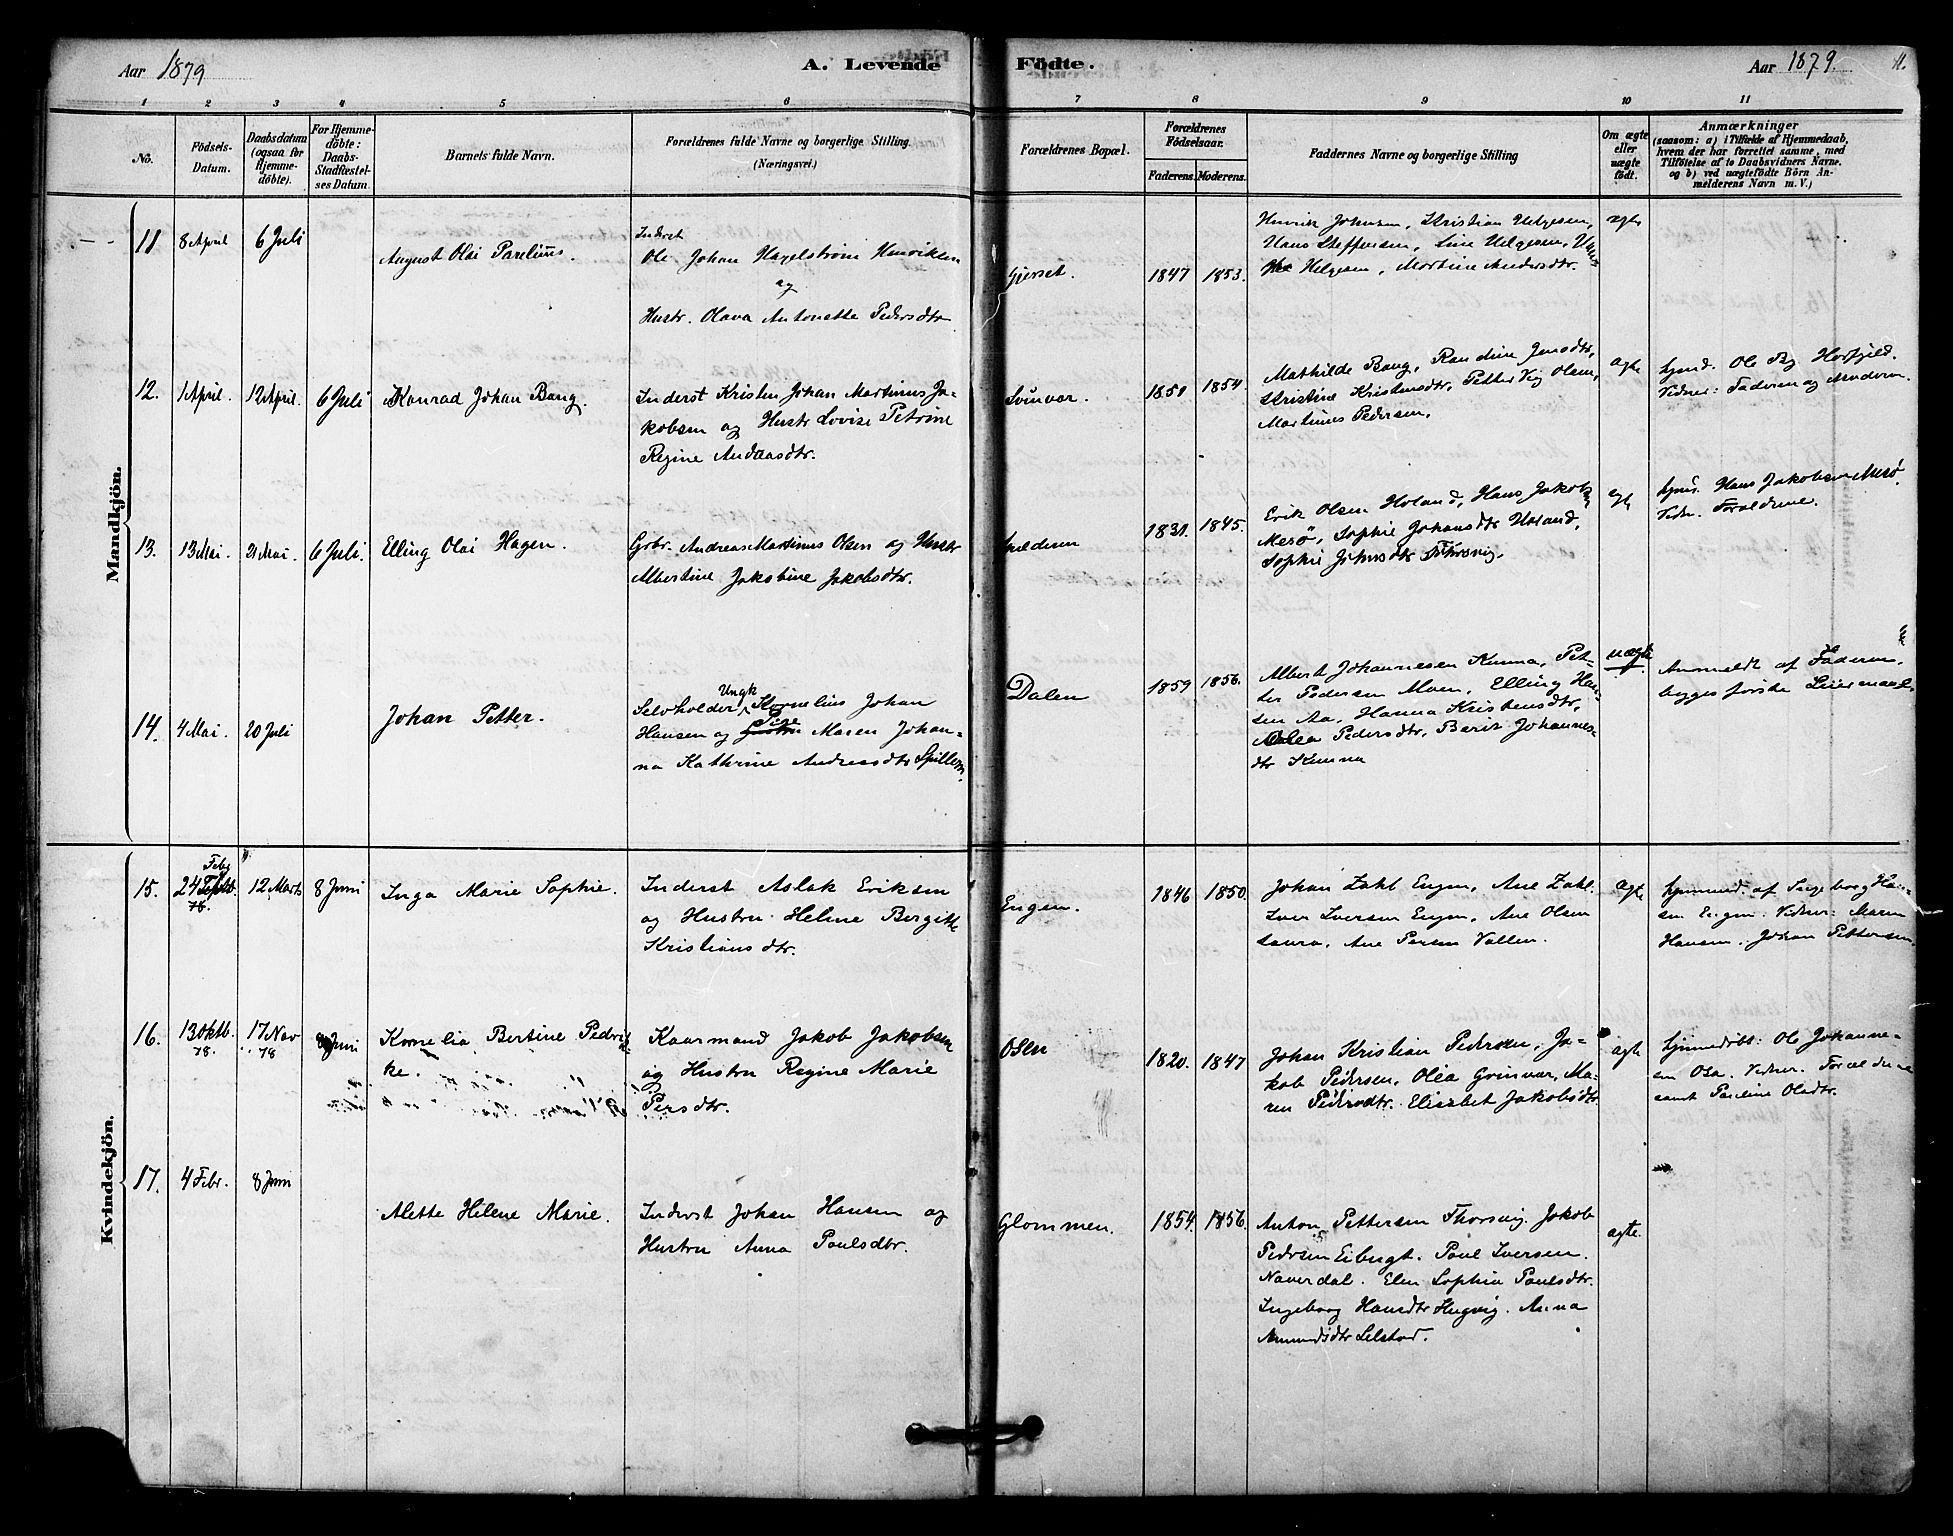 Aar 1879
A. Levende
Fødte.
Aar 1879.
1 2 3 4 5 6 7 8 9 10 11
No.
Födsels-
Datum.
Daabsdatum
(ogsaa for
Hjemme-
döbte).
For Hjemme-
döbte:
Daabs-
Stadfæstel-
ses Datum.
Barnets fulde Navn.
Forældrenes fulde Navne og borgerlige Stilling.
(Næringsvei.)
Forældrenes Bopæl.
Forældrenes
Födselsaar.
Faderens. Moderens.
Faddernes Navne og borgerlige Stilling
Om ægte
eller
uægte
født.
Anmærkninger
(saasom: a) i Tilfælde af Hjemmedaab,
hvem der har forrettet samme, med
Tilföielse af to Daabsvidners Navne.
og b) ved uægtefödte Börn An-
melderens Navn m. V.)
Mandkjön.
11 8 April 6 Juli
August Olai Parelius.
Inderst
Ole Johan Hagelstrøm Henriksen
og
Hustr. Olava Antonette Pedersdtr
Gjerset.
1847 1853.
Henrik Johnsen, Kristian Helgesen,
Hans Steffensen, Line Helgesen,
Helgesen, Martine Andersdtr.
ægte
12. 1 April. 12 April. 6 Juli
Konrad Johan Bang.
Inderst Kristen Johan Martinus Ja-
kobsen og Hustr Lovise Petrine
Regine Andreasdtr.
Svinvær.
1850 1854.
Mathilde Bang, Randine Jensdtr,
Kristine Kristensdtr, Petter Vig Olsen,
Martinus Pedersen.
ægte
hjmd. Ole Horsfjeld.
Vidner: Faderen og Moderen.
13. 13 Mai. 21 Mai. 6 Juli.
Elling Olai Hagen.
Grbr. Andreas Martinus Olsen og Hustr
Albertine Jakobine Jakobsdtr.
1831. 1845.
Erik Olsen Holand, Hans Jakobs
Mesø, Sophie Johansdtr Holand,
Sophie Johnsdtr Thorsvig.
ægte
hjmd. Hans Jakobsen Mesø.
Vidn. Forældrene.
14. 4 Mai. 20 Juli
Johan Petter.
Ungk
Selvholder Kornelius Johan
Pige
Hansen og Hustru Maren Johan-
na Kathrine Andreasdtr Spillern.
Dalen
1859 1856.
Albert Johannesen Kunna, Pet-
ter Pedersen Moen, Elling Han-
sen Aa, Hanna Kristensdtr,
Olea Pedersdtr, Berit Johannes-
dtr Kunna
uægte
Anmeldt af Faderen,
begges første Leiermaal.
Kvindekjön.
Febr
15. 24 Septb. 12 Marts 8 Juni
78.
Inga Marie Sophie.
Inderst Aslak Eriksen
og Hustru Helene Bergitte
Kristians dtr.
Engen.
1846 1850.
Johan Zahl Engen, Ane Zahl.
Iver Iversen Engen, Ane Olsen
Saura, Ane Persen Vallen.
ægte
hjemmed. af Ingeborg Han-
sen Engen. Vidner: Maren
Hansen. Johan Pettersen.
16. 13 Oktb. 17 Nov 8 Juni
78. 78
Kornelia Bertine Pedrik-
ke.
Kaarmand Jakob Jakobsen
og Hustru Regine Marie
Persdtr.
Osen
1820. 1847
Johan Kristian Pedersen, Ja-
kob Pedersen, Olea Grinvær, Ma-
ren Pedersdtr. Elisabet Jakobsdtr.
ægte
hjemmedöbt: Ole Johanne-
sen Osa. Vidner. Forældrene
samt Pauline Olsdtr.
17. 4 Febr. 8 Juni
Alette Helene Marie.
Inderst Johan Hansen og
Hustru Anna Paulsdtr.
Glommen.
1854. 1856
Anton Pettersen Thorsvig. Jakob
Pedersen Eibugt. Paul Iversen
Naverdal. Elen Sophia Paulsdtr.
Ingeborg Hansdtr Hugvig. Anna
Amundsdtr Selstad.
ægte.